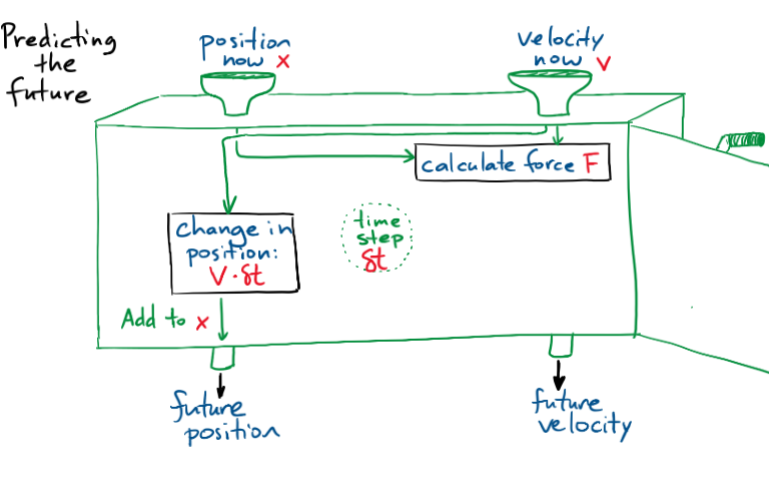 Predicting
the
future
position
now x
velocity
now v
calculate force F
change in
position:
V·δt
time
step
δt
Add to x
future
position
future
velocity